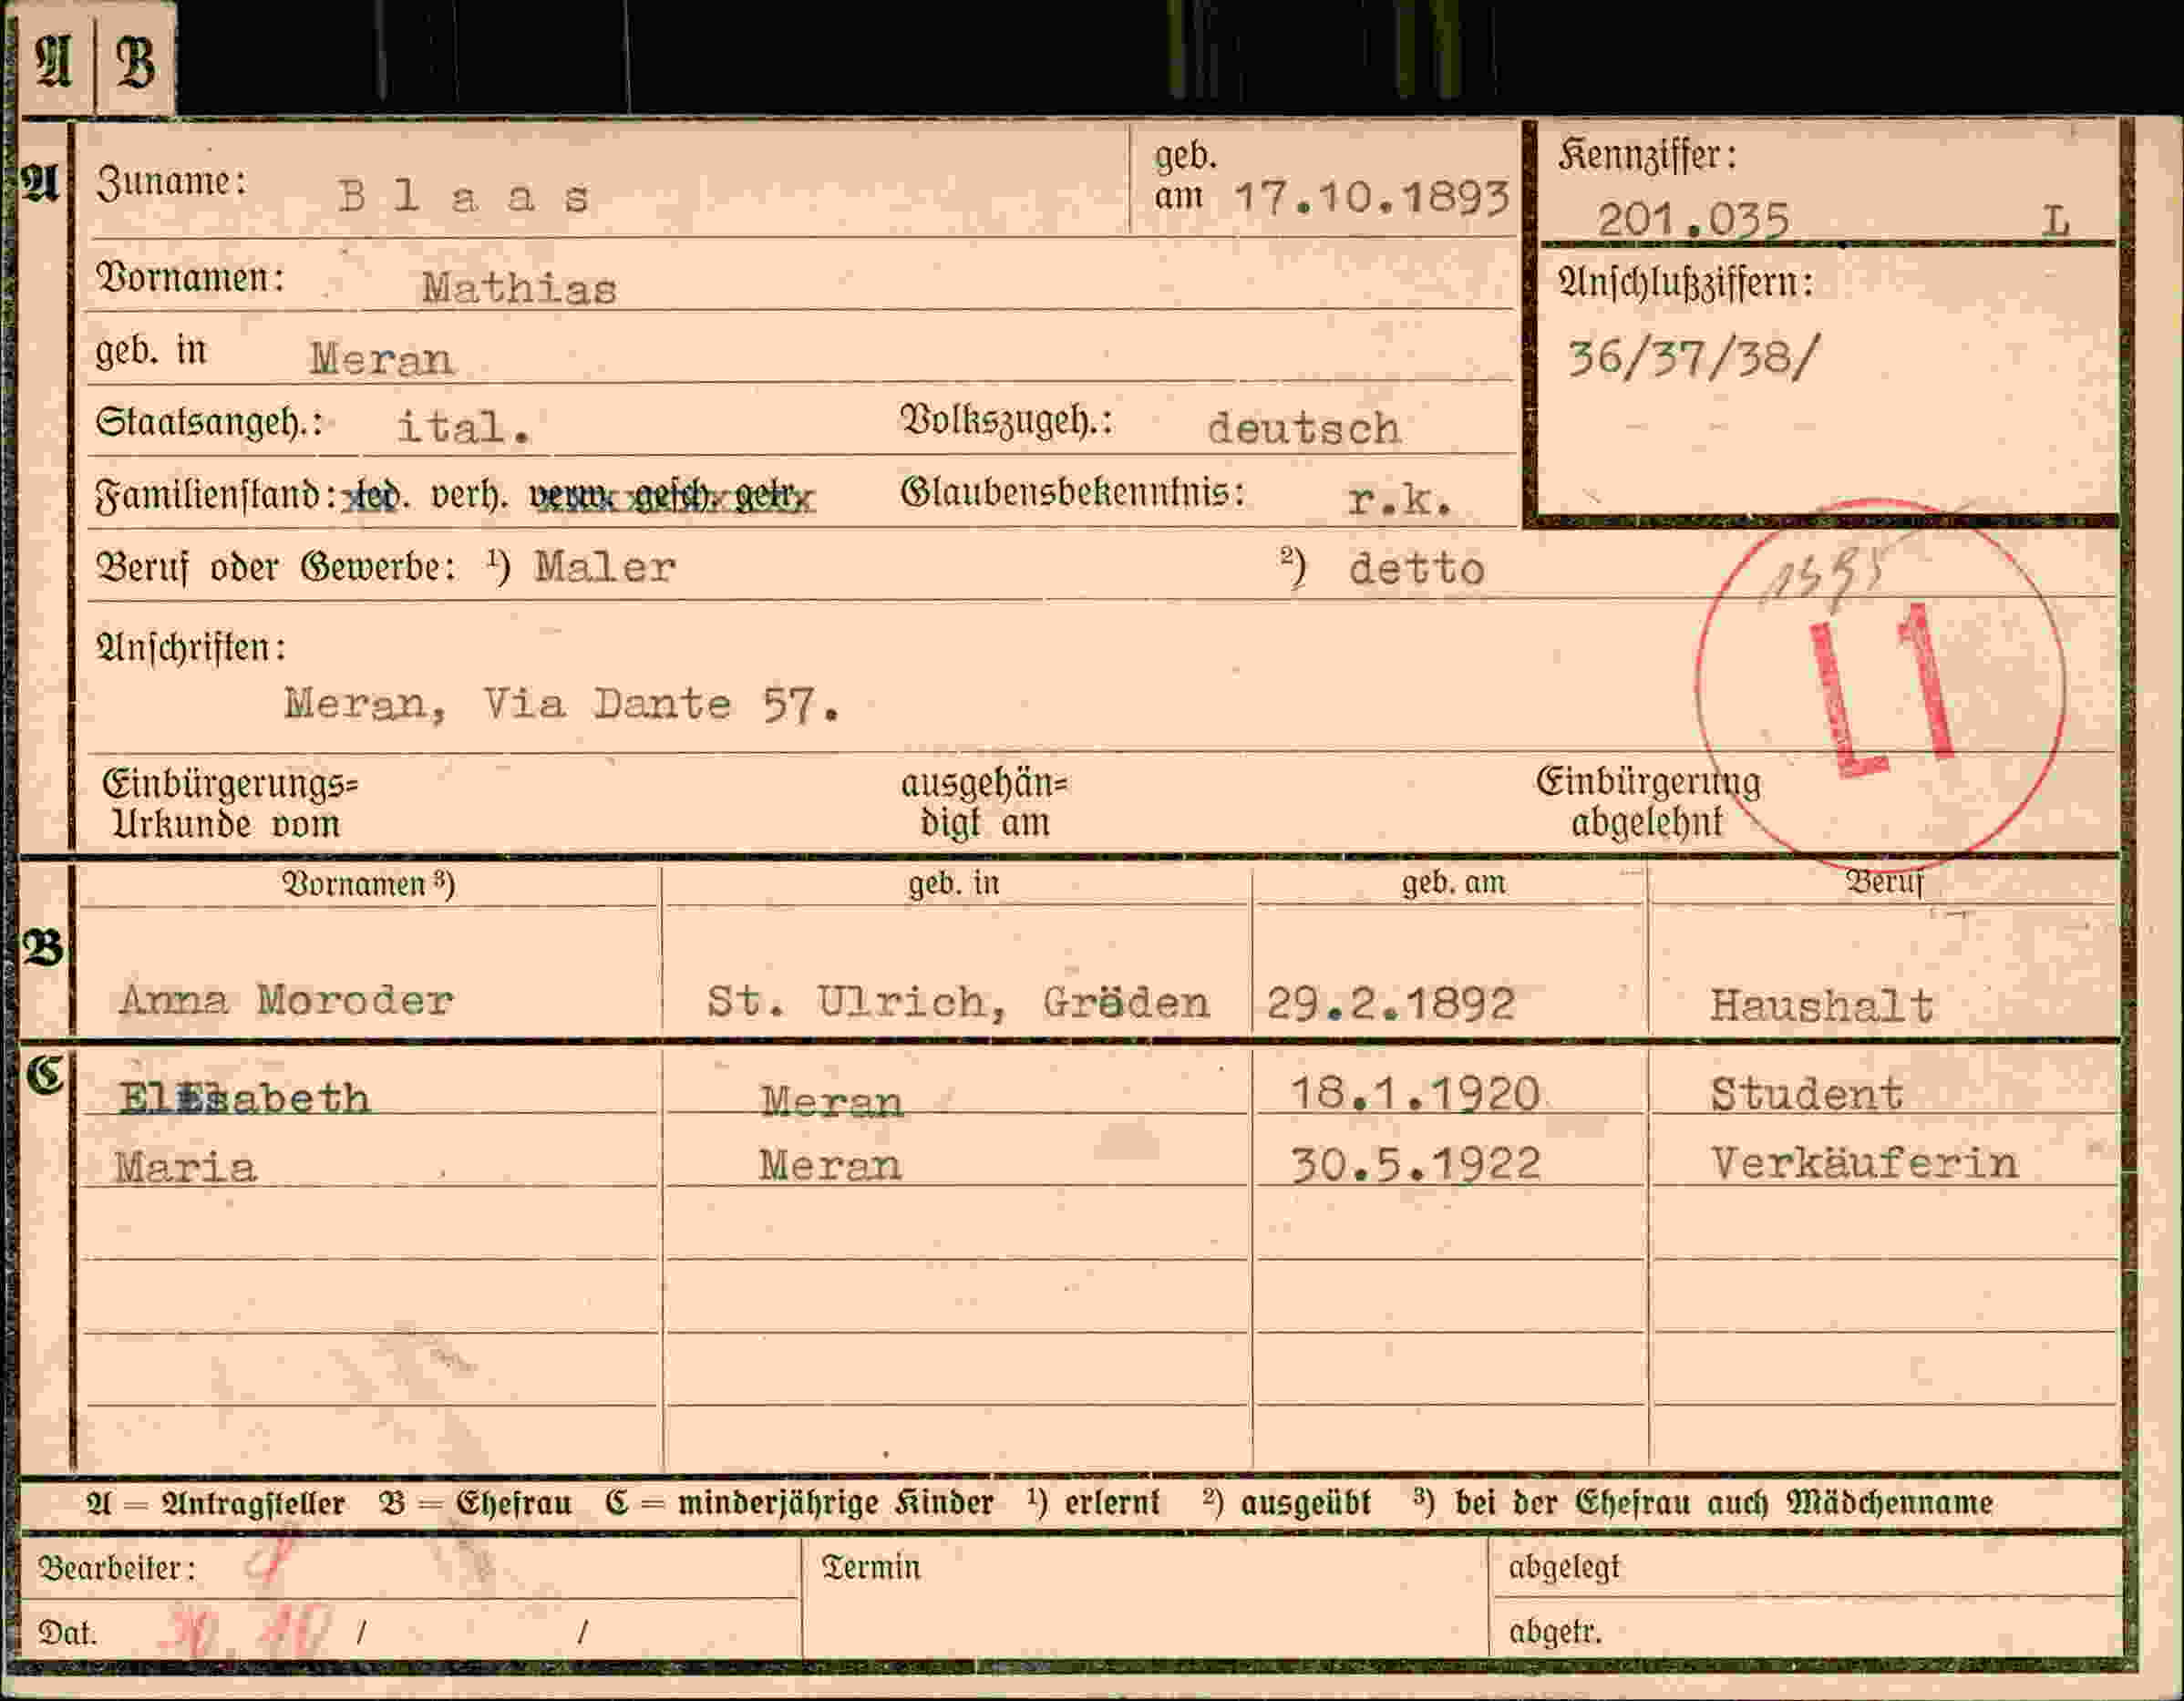 A B
A
Zuname: Blaas geb. am 17.10.1893
Kennziffer:
201.035 L
Vornamen: Mathias
Anschlußziffern:
36/37/38/
geb. in Meran
Staatsangeh.: ital. Volkszugeh.: deutsch
Familienstand: led. verh. verw. gesch. getr. Glaubensbekenntnis: r.k.
Beruf oder Gewerbe: ¹) Maler ²) detto
L1
Anschriften:
Meran, Via Dante 57.
Einbürgerungs=
Urkunde vom
ausgehän=
digt am
Einbürgerung
abgelehnt
Vornamen ³) geb. in geb. am Beruf
B
Anna Moroder St. Ulrich, Gröden 29.2.1892 Haushalt
C
Elisabeth Meran 18.1.1920 Student
Maria Meran 30.5.1922 Verkäuferin
A = Antragsteller B = Ehefrau C = minderjährige Kinder ¹) erlernt ²) ausgeübt ³) bei der Ehefrau auch Mädchenname
Bearbeiter: Termin abgelegt
Dat. / / abgetr.